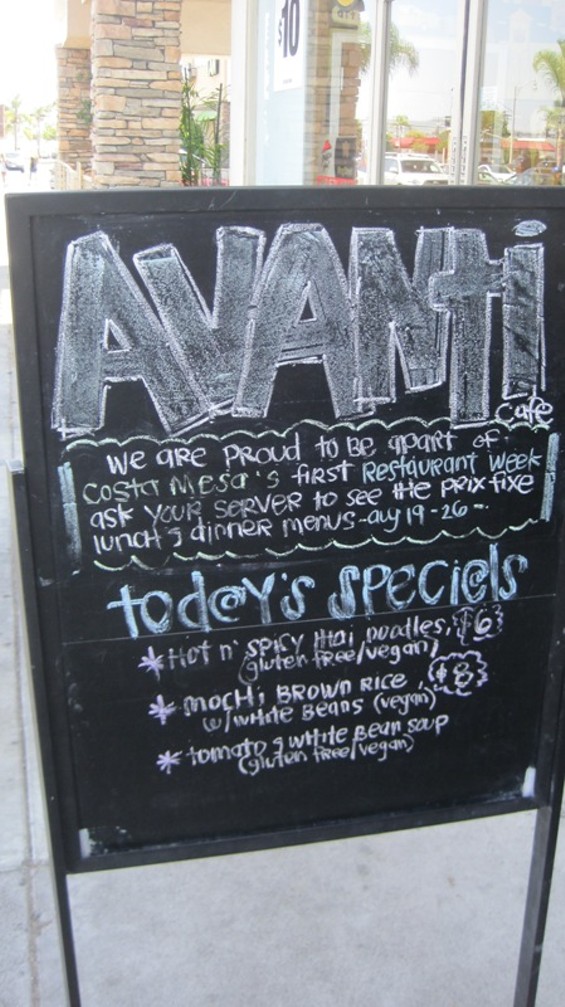 $10
AVANTi
cafe
We are proud to be apart of
Costa Mesa's first Restaurant Week
ask your server to see the prix-fixe
lunch & dinner menus - aug 19 - 26 -
today's specials
* Hot n' spicy thai noodles, $6
(gluten free/vegan)
* mochi Brown Rice, $8
w/white Beans (vegan)
* tomato & white Bean soup
(gluten free/vegan)